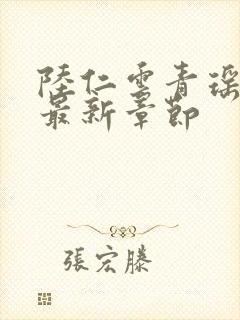 陸仁雲青瑶
最新章節
張宏滕